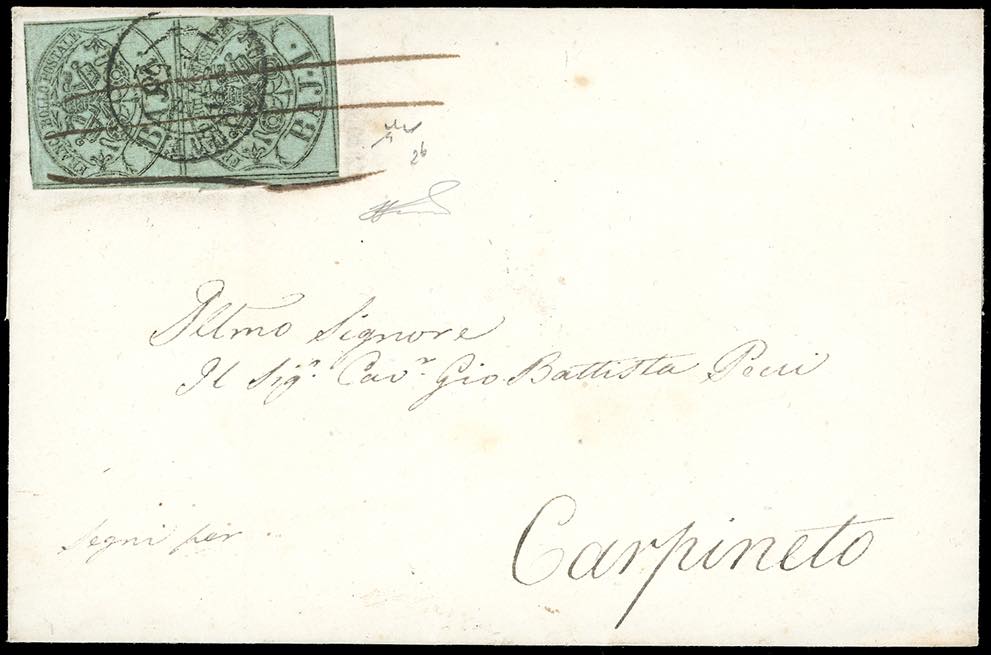 FRANCO BOLLO POSTALE
BAJ
BAJ · 1 ·
26
Illmo Signore
Il Sigr. Cavr. Gio Battista Pecci
Segni per
Carpineto